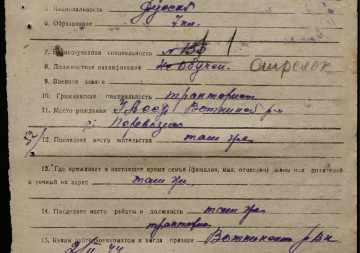 5. Национальность русский
6. Образование 7 кл.
7. Военно-учетная специальность № 133
8. Должностная квалификация Не обучен. Стрелок
9. Военное звание
10. Гражданская специальность тракторист
11. Место рождения УАССР Воткинский р-н
д. Перевозное
12. Последнее место жительства там же
13. Где проживает в настоящее время семья (фамилия, имя, отчество) жены или родителей
и точный их адрес там же
14. Последнее место работы и должность там же
тракторист
15. Каким райвоенкоматом и когда призван Воткинским РВК
44